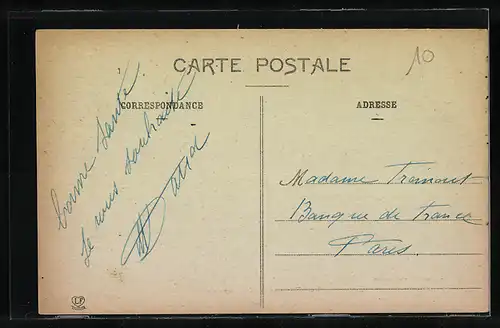 CARTE POSTALE
10
CORRESPONDANCE
ADRESSE
bonne santé.
Je vous souhaite
Madame
Banque de France
Paris.
LF